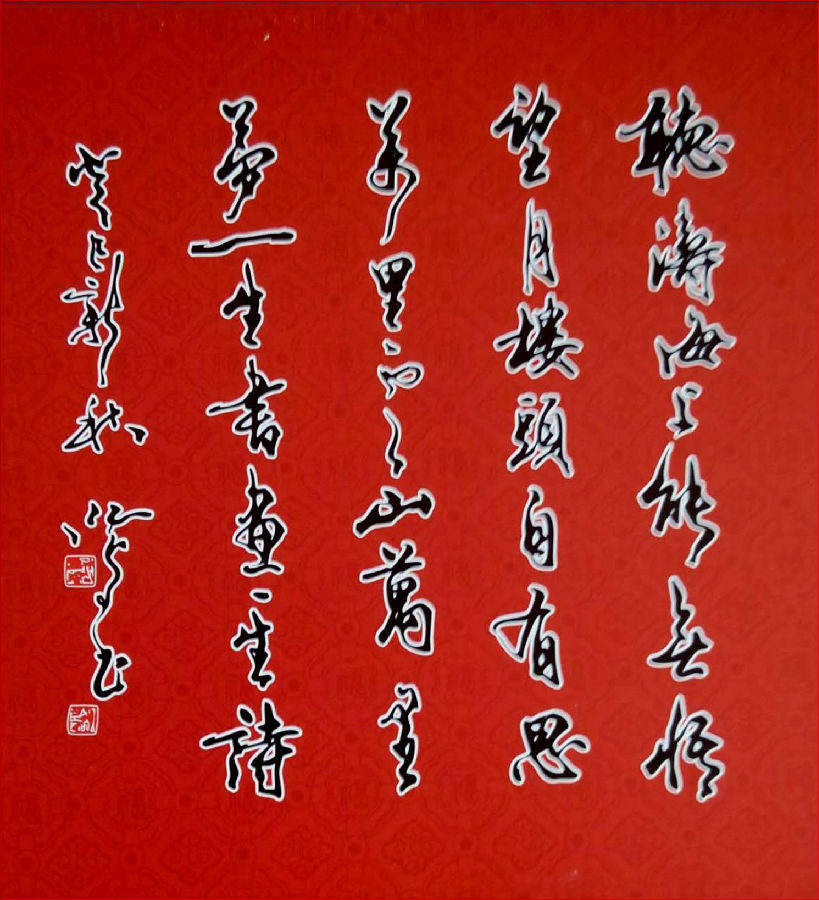 聽濤海上能無悟
望月樓頭自有思
萬里雲山萬里
夢一生書畫一生詩
癸巳新秋